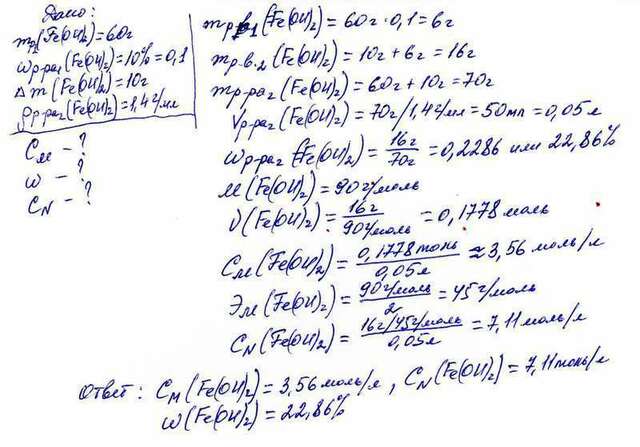 Дано:
mр₁(Fe(OH)₂)=60г
ωр-ра₁(Fe(OH)₂)=10%=0,1
Δm(Fe(OH)₂)=10г
ρр-ра₂(Fe(OH)₂)=1,4г/мл
Cм - ?
ω - ?
CN - ?
mр.в.1(Fe(OH)₂)=60г·0,1=6г
mр.в.2(Fe(OH)₂)=10г+6г=16г
mр-ра₂(Fe(OH)₂)=60г+10г=70г
Vр-ра₂(Fe(OH)₂)=70г/1,4г/мл=50мл=0,05л
ωр-ра₂(Fe(OH)₂)=16г/70г=0,2286 или 22,86%
M(Fe(OH)₂)=90г/моль
ν(Fe(OH)₂)=16г/90г/моль=0,1778моль
Cм(Fe(OH)₂)=0,1778моль/0,05л≈3,56моль/л
Эм(Fe(OH)₂)=90г/моль/2=45г/моль
CN(Fe(OH)₂)=16г/45г/моль/0,05л=7,11моль/л
Ответ: Cм(Fe(OH)₂)=3,56моль/л, CN(Fe(OH)₂)=7,11моль/л
ω(Fe(OH)₂)=22,86%